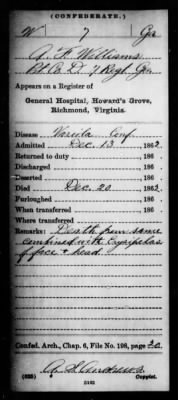 (CONFEDERATE.)
W 7 Ga
A. F. Williams
Pt Co. D. 7 Regt Ga.
Appears on a Register of
General Hospital, Howard's Grove,
Richmond, Virginia.
Disease Variola Conf.
Admitted Dec. 13, 1862
Returned to duty , 186
Discharged , 186
Deserted , 186
Died Dec. 20, 1862
Furloughed , 186
When transferred , 186
Where transferred
Remarks: Death from same
combined with Erysipelas
of face & head.
Confed. Arch., Chap. 6, File No. 198, page 20
Andrews
(635) Copyist.